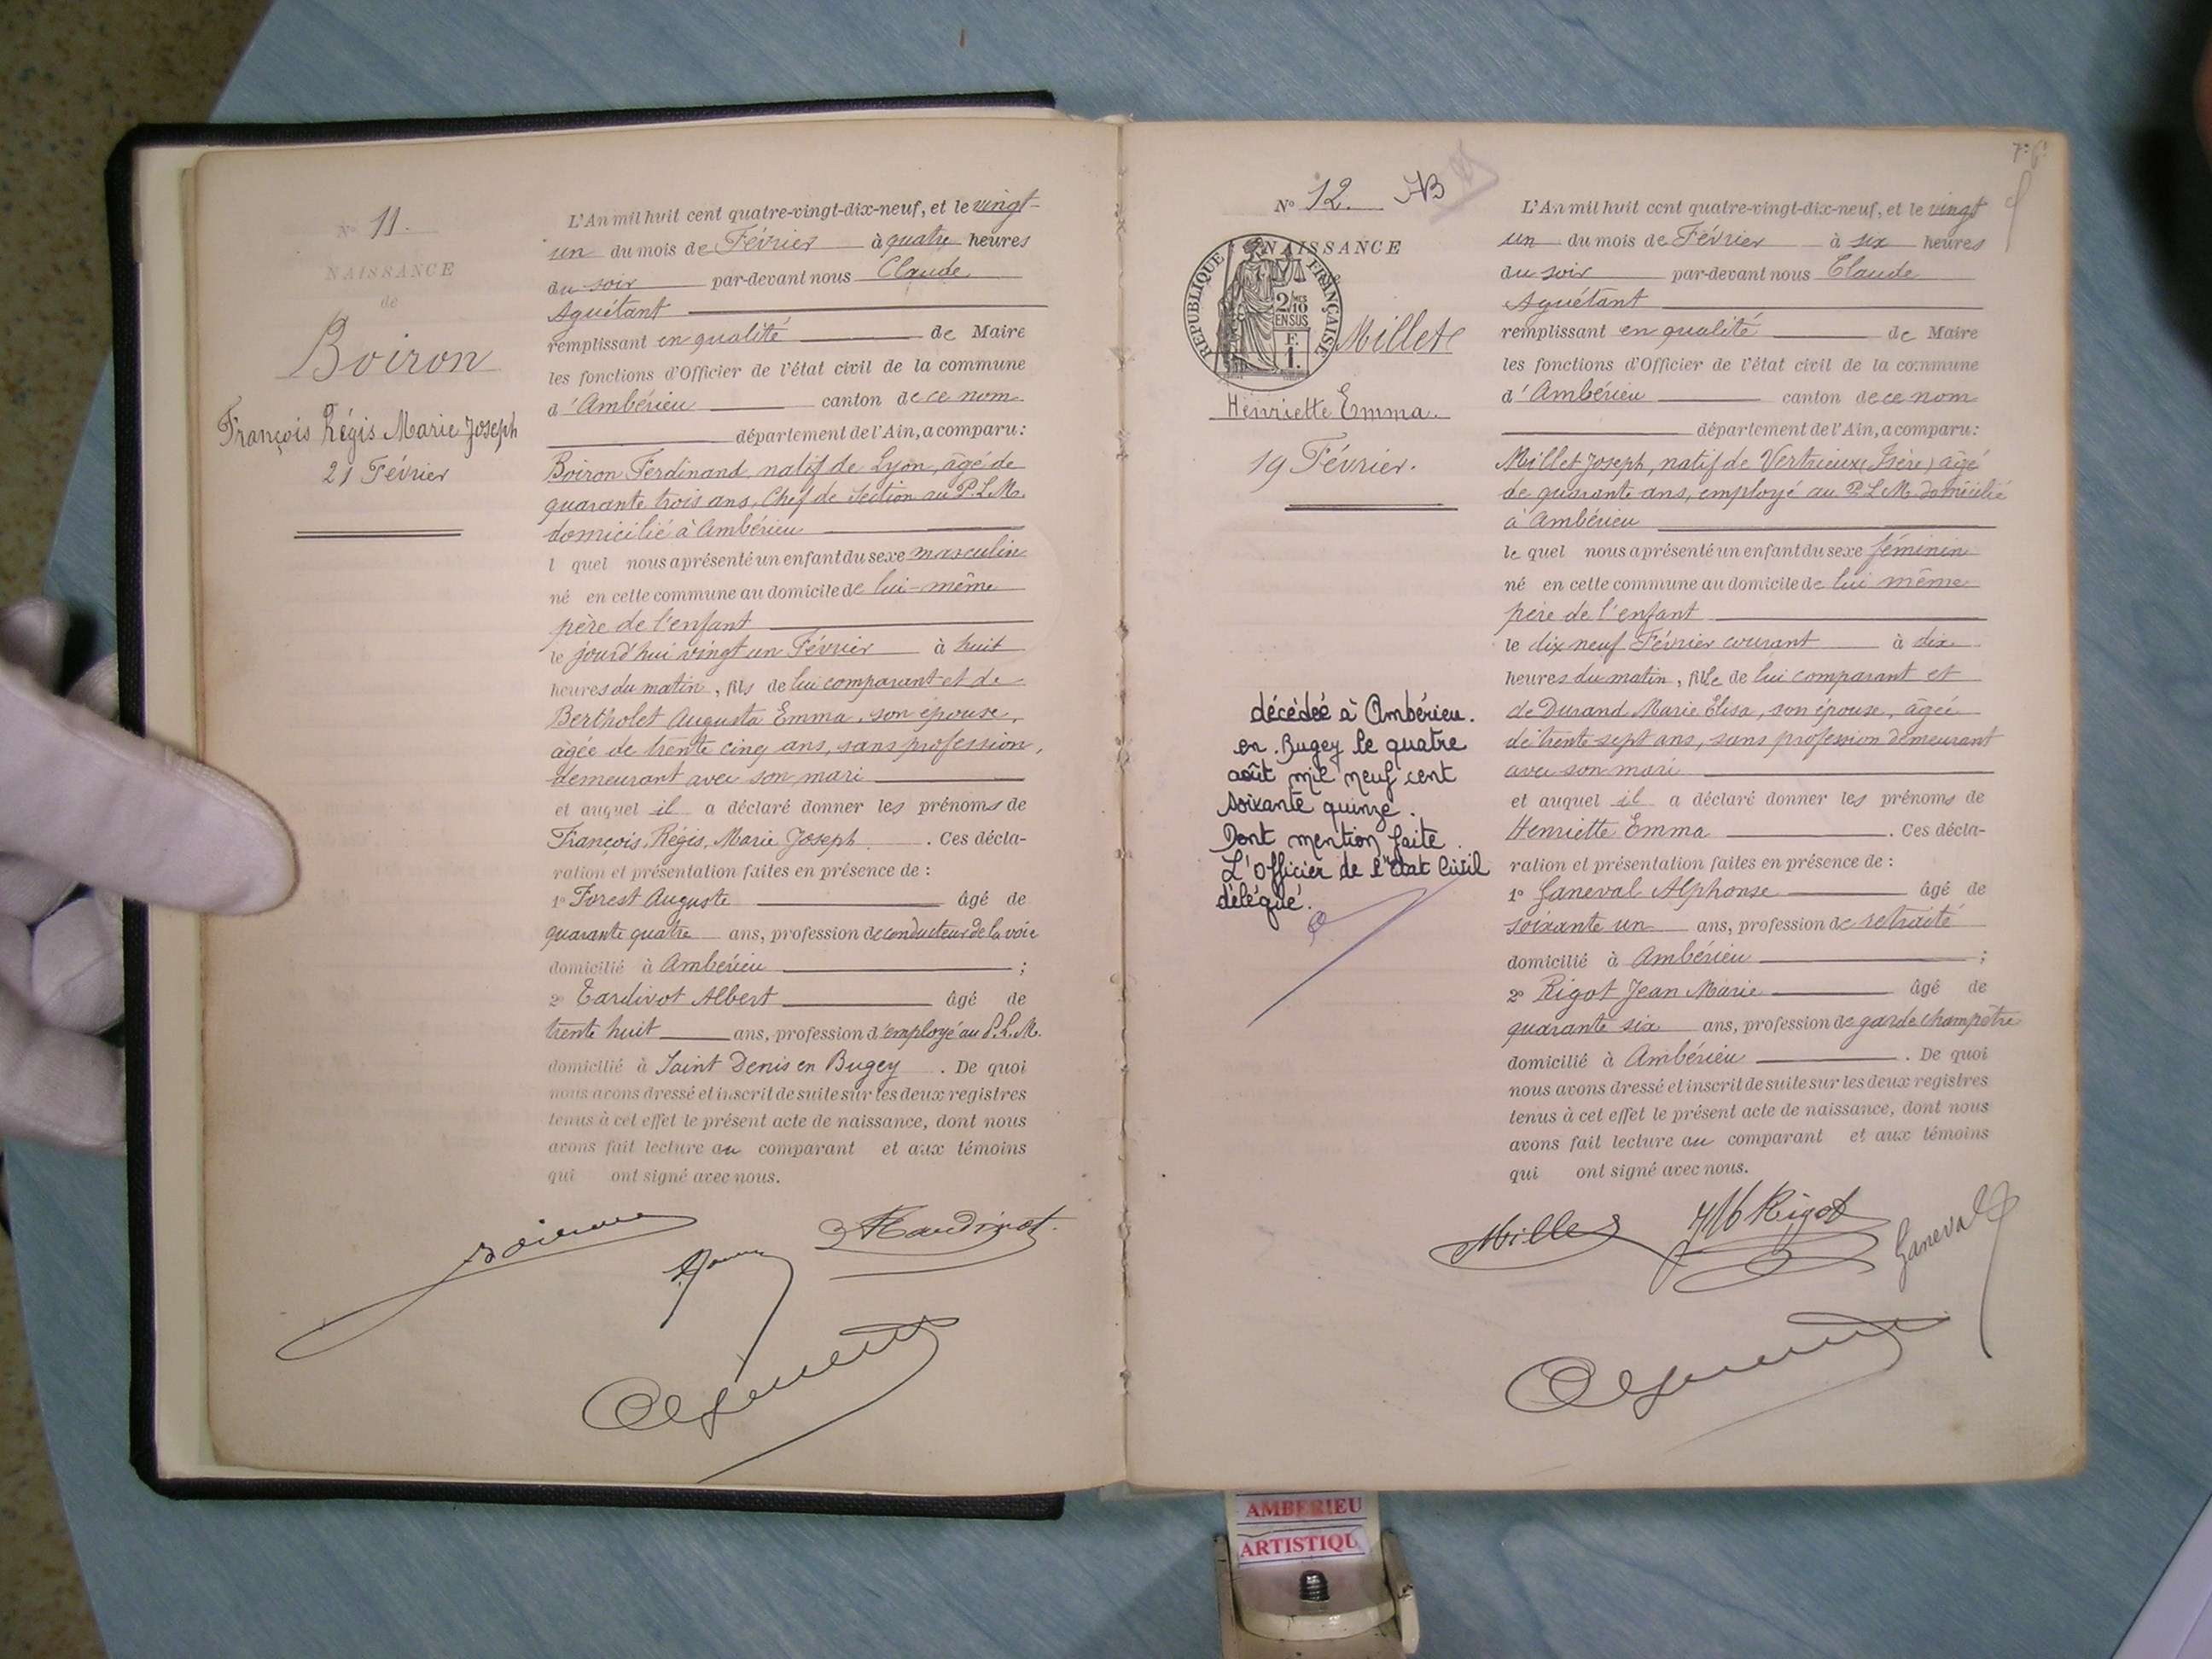 N° 11.
NAISSANCE
de
Boiron
François Régis Marie Joseph
21 Février
L'An mil huit cent quatre-vingt-dix-neuf, et le vingt-
un du mois de Février à quatre heures
du soir par-devant nous Claude
Aguétant
remplissant en qualité de Maire
les fonctions d'Officier de l'état civil de la commune
d'Ambérieu canton de ce nom
département de l'Ain, a comparu:
Boiron Ferdinand, natif de Lyon, âgé de
quarante trois ans, Chef de Section au P.L.M.
domicilié à Ambérieu
l quel nous a présenté un enfant du sexe masculin
né en cette commune au domicile de lui-même
père de l'enfant
le jourd'hui vingt un Février à huit
heures du matin, fils de lui comparant et de
Bertholet Augusta Emma, son épouse,
âgée de trente cinq ans, sans profession,
demeurant avec son mari
et auquel il a déclaré donner les prénoms de
François, Régis, Marie Joseph. Ces décla-
ration et présentation faites en présence de :
1° Forest Auguste âgé de
quarante quatre ans, profession de conducteur de la voie
domicilié à Ambérieu ;
2° Tardivot Albert âgé de
trente huit ans, profession d'employé au P.L.M.
domicilié à Saint Denis en Bugey . De quoi
nous avons dressé et inscrit de suite sur les deux registres
tenus à cet effet le présent acte de naissance, dont nous
avons fait lecture au comparant et aux témoins
qui ont signé avec nous.
N° 12.
NAISSANCE
RÉPUBLIQUE FRANÇAISE
2/10MES
EN SUS
F.
1.
Millet
Henriette Emma.
19 Février.
décédée à Ambérieu.
en Bugey le quatre
août mil neuf cent
soixante quinze.
Dont mention faite.
L'Officier de l'Etat Civil
délégué.
L'An mil huit cent quatre-vingt-dix-neuf, et le vingt
un du mois de Février à six heures
du soir par-devant nous Claude
Aguétant
remplissant en qualité de Maire
les fonctions d'Officier de l'état civil de la commune
d'Ambérieu canton de ce nom
département de l'Ain, a comparu:
Millet Joseph, natif de Vertrieux (Isère) âgé
de quarante ans, employé au P.L.M. domicilié
à Ambérieu
le quel nous a présenté un enfant du sexe féminin
né en cette commune au domicile de lui même
père de l'enfant
le dix neuf Février courant à dix
heures du matin, fille de lui comparant et
de Durand Marie Élisa, son épouse, âgée
de trente sept ans, sans profession demeurant
avec son mari
et auquel il a déclaré donner les prénoms de
Henriette Emma . Ces décla-
ration et présentation faites en présence de :
1° Ganeval Alphonse âgé de
soixante un ans, profession de retraité
domicilié à Ambérieu ;
2° Rigot Jean Marie âgé de
quarante six ans, profession de garde champêtre
domicilié à Ambérieu . De quoi
nous avons dressé et inscrit de suite sur les deux registres
tenus à cet effet le présent acte de naissance, dont nous
avons fait lecture au comparant et aux témoins
qui ont signé avec nous.
Millet
Rigot
Ganeval
AMBERIEU
ARTISTIQU